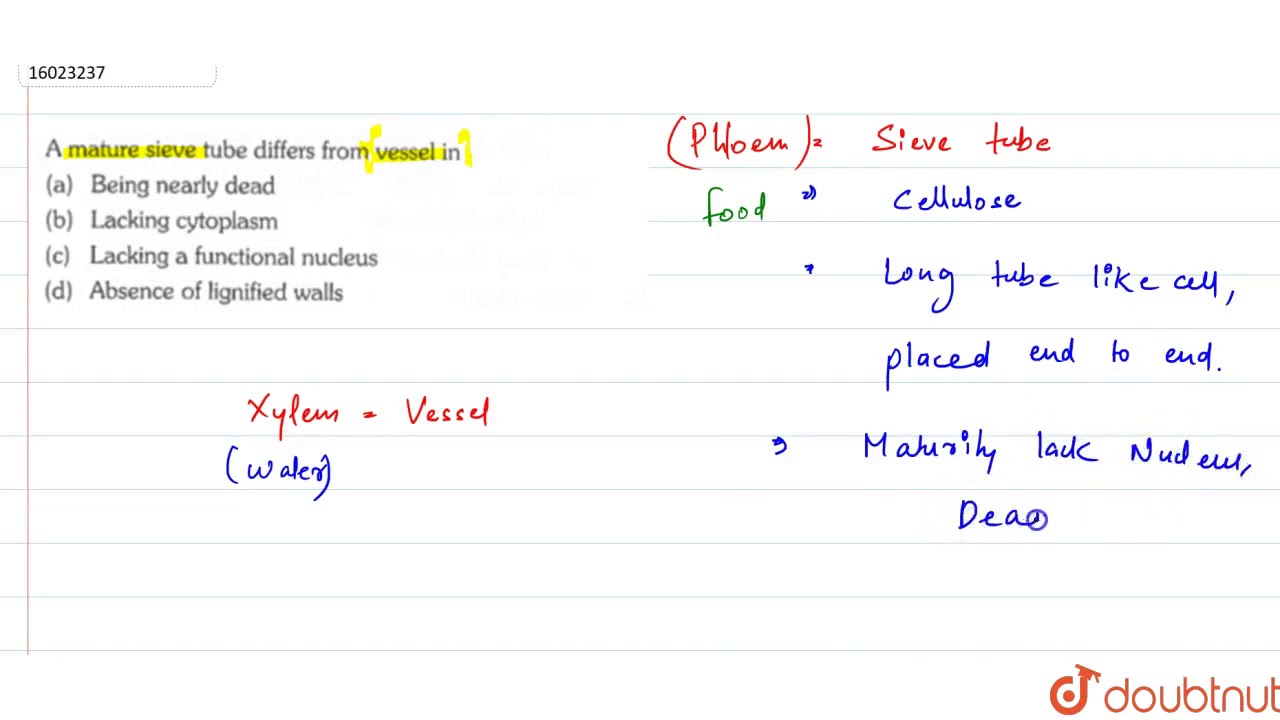 16023237
A mature sieve tube differs from vessel in
(a) Being nearly dead
(b) Lacking cytoplasm
(c) Lacking a functional nucleus
(d) Absence of lignified walls
Xylem = Vessel
(Water)
(Phloem) = Sieve tube
food Cellulose
Long tube like cell,
placed end to end.
Maturity lack Nucleus,
Dead
doubtnut